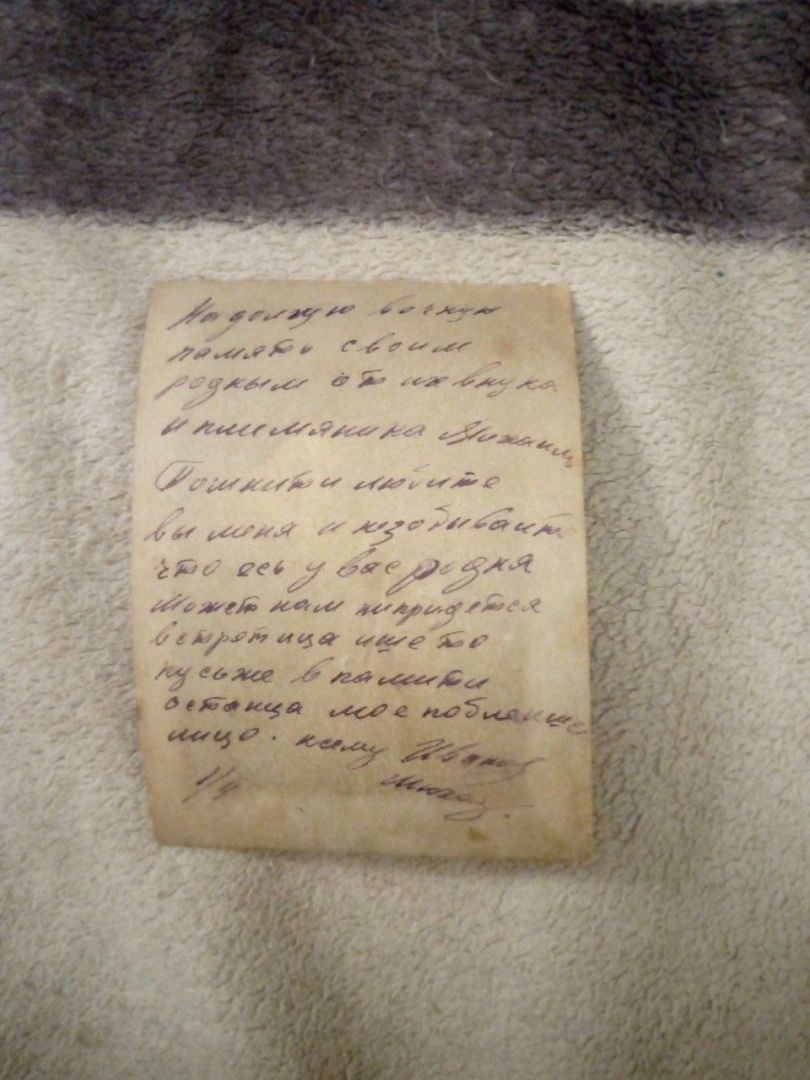 На долгую вечную
память своим
родным от их внука
и племяника Михаил
Помнити любите
вы меня и незобывайте
что есь у вас родня
Может нам нипридется
встретица ище то
пусь же в памити
останца мое поблекшее
лицо.